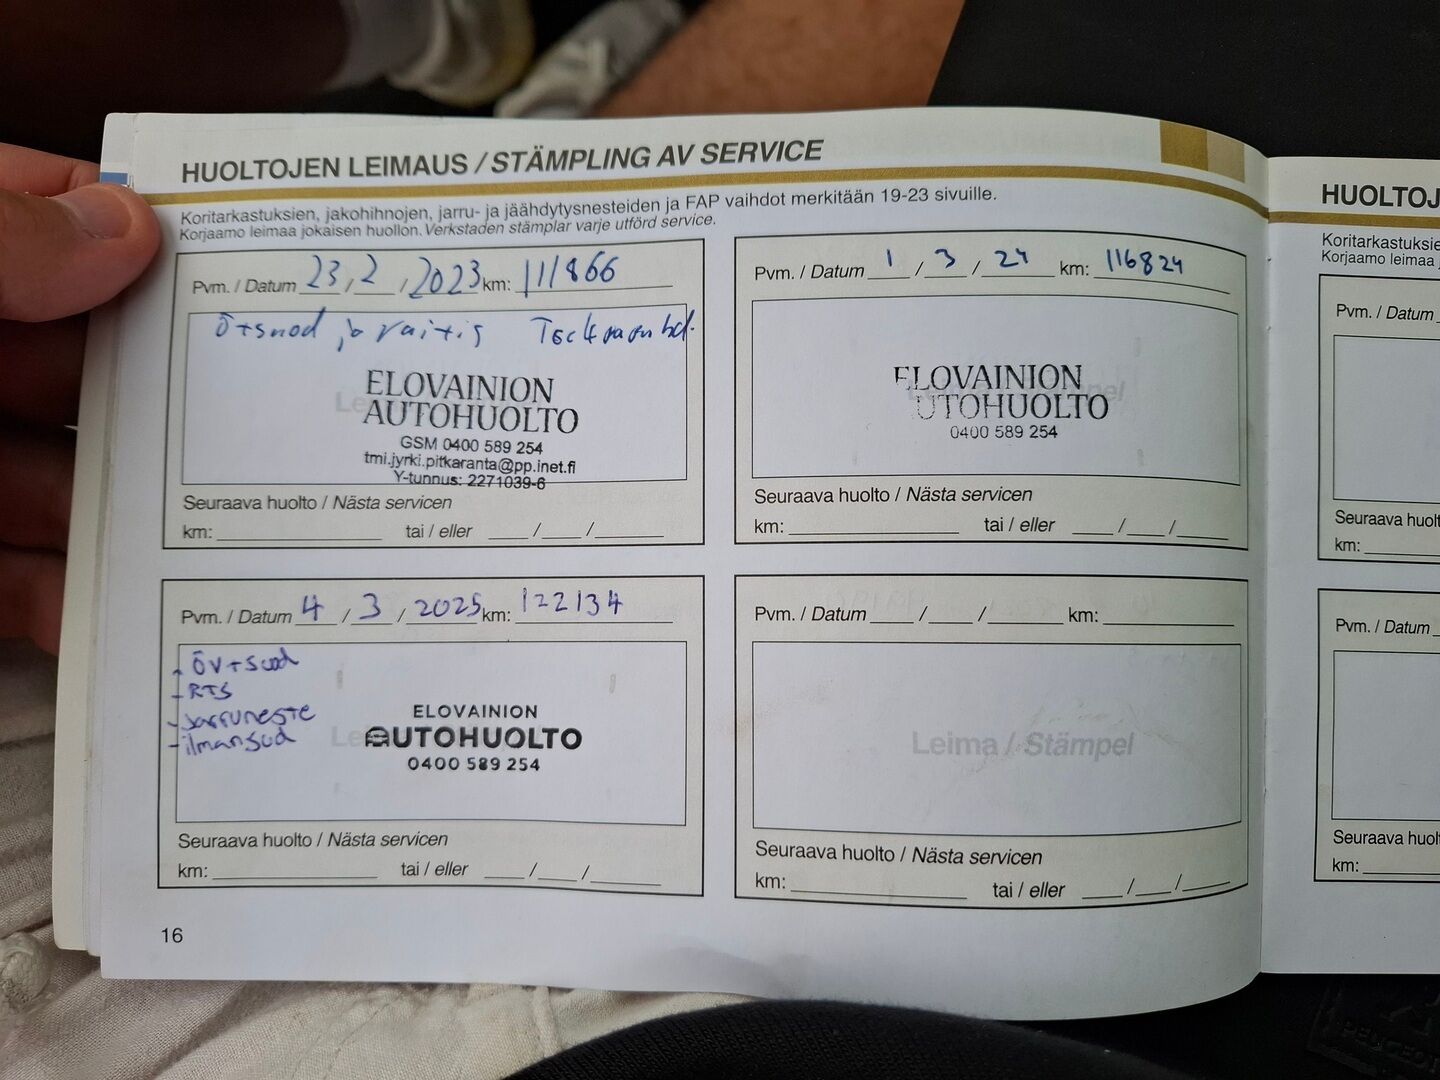 HUOLTOJEN LEIMAUS / STÄMPLING AV SERVICE
Koritarkastuksien, jakohihnojen, jarru- ja jäähdytysnesteiden ja FAP vaihdot merkitään 19-23 sivuille.
Korjaamo leimaa jokaisen huollon. Verkstaden stämplar varje utförd service.
Pvm. / Datum 23 / 2 / 2023 km: 111866
ja
ELOVAINION
AUTOHUOLTO
GSM 0400 589 254
tmi.jyrki.pitkaranta@pp.inet.fi
Y-tunnus: 2271039-6
Seuraava huolto / Nästa servicen
km: tai / eller / /
Pvm. / Datum 1 / 3 / 24 km: 116824
Leima / Stämpel
ELOVAINION
UTOHUOLTO
0400 589 254
Seuraava huolto / Nästa servicen
km: tai / eller / /
Pvm. / Datum 4 / 3 / 2025 km: 122134
- öv+suod
- RTS
- Jarruneste
- ilmansuod
ELOVAINION
AUTOHUOLTO
0400 589 254
Seuraava huolto / Nästa servicen
km: tai / eller / /
Pvm. / Datum / / km:
Leima / Stämpel
Seuraava huolto / Nästa servicen
km: tai / eller / /
16
HUOLTOJ
Koritarkastuksie
Korjaamo leimaa
Pvm. / Datum
Seuraava huolt
km:
Pvm. / Datum
Seuraava huol
km:
PEUGEOT